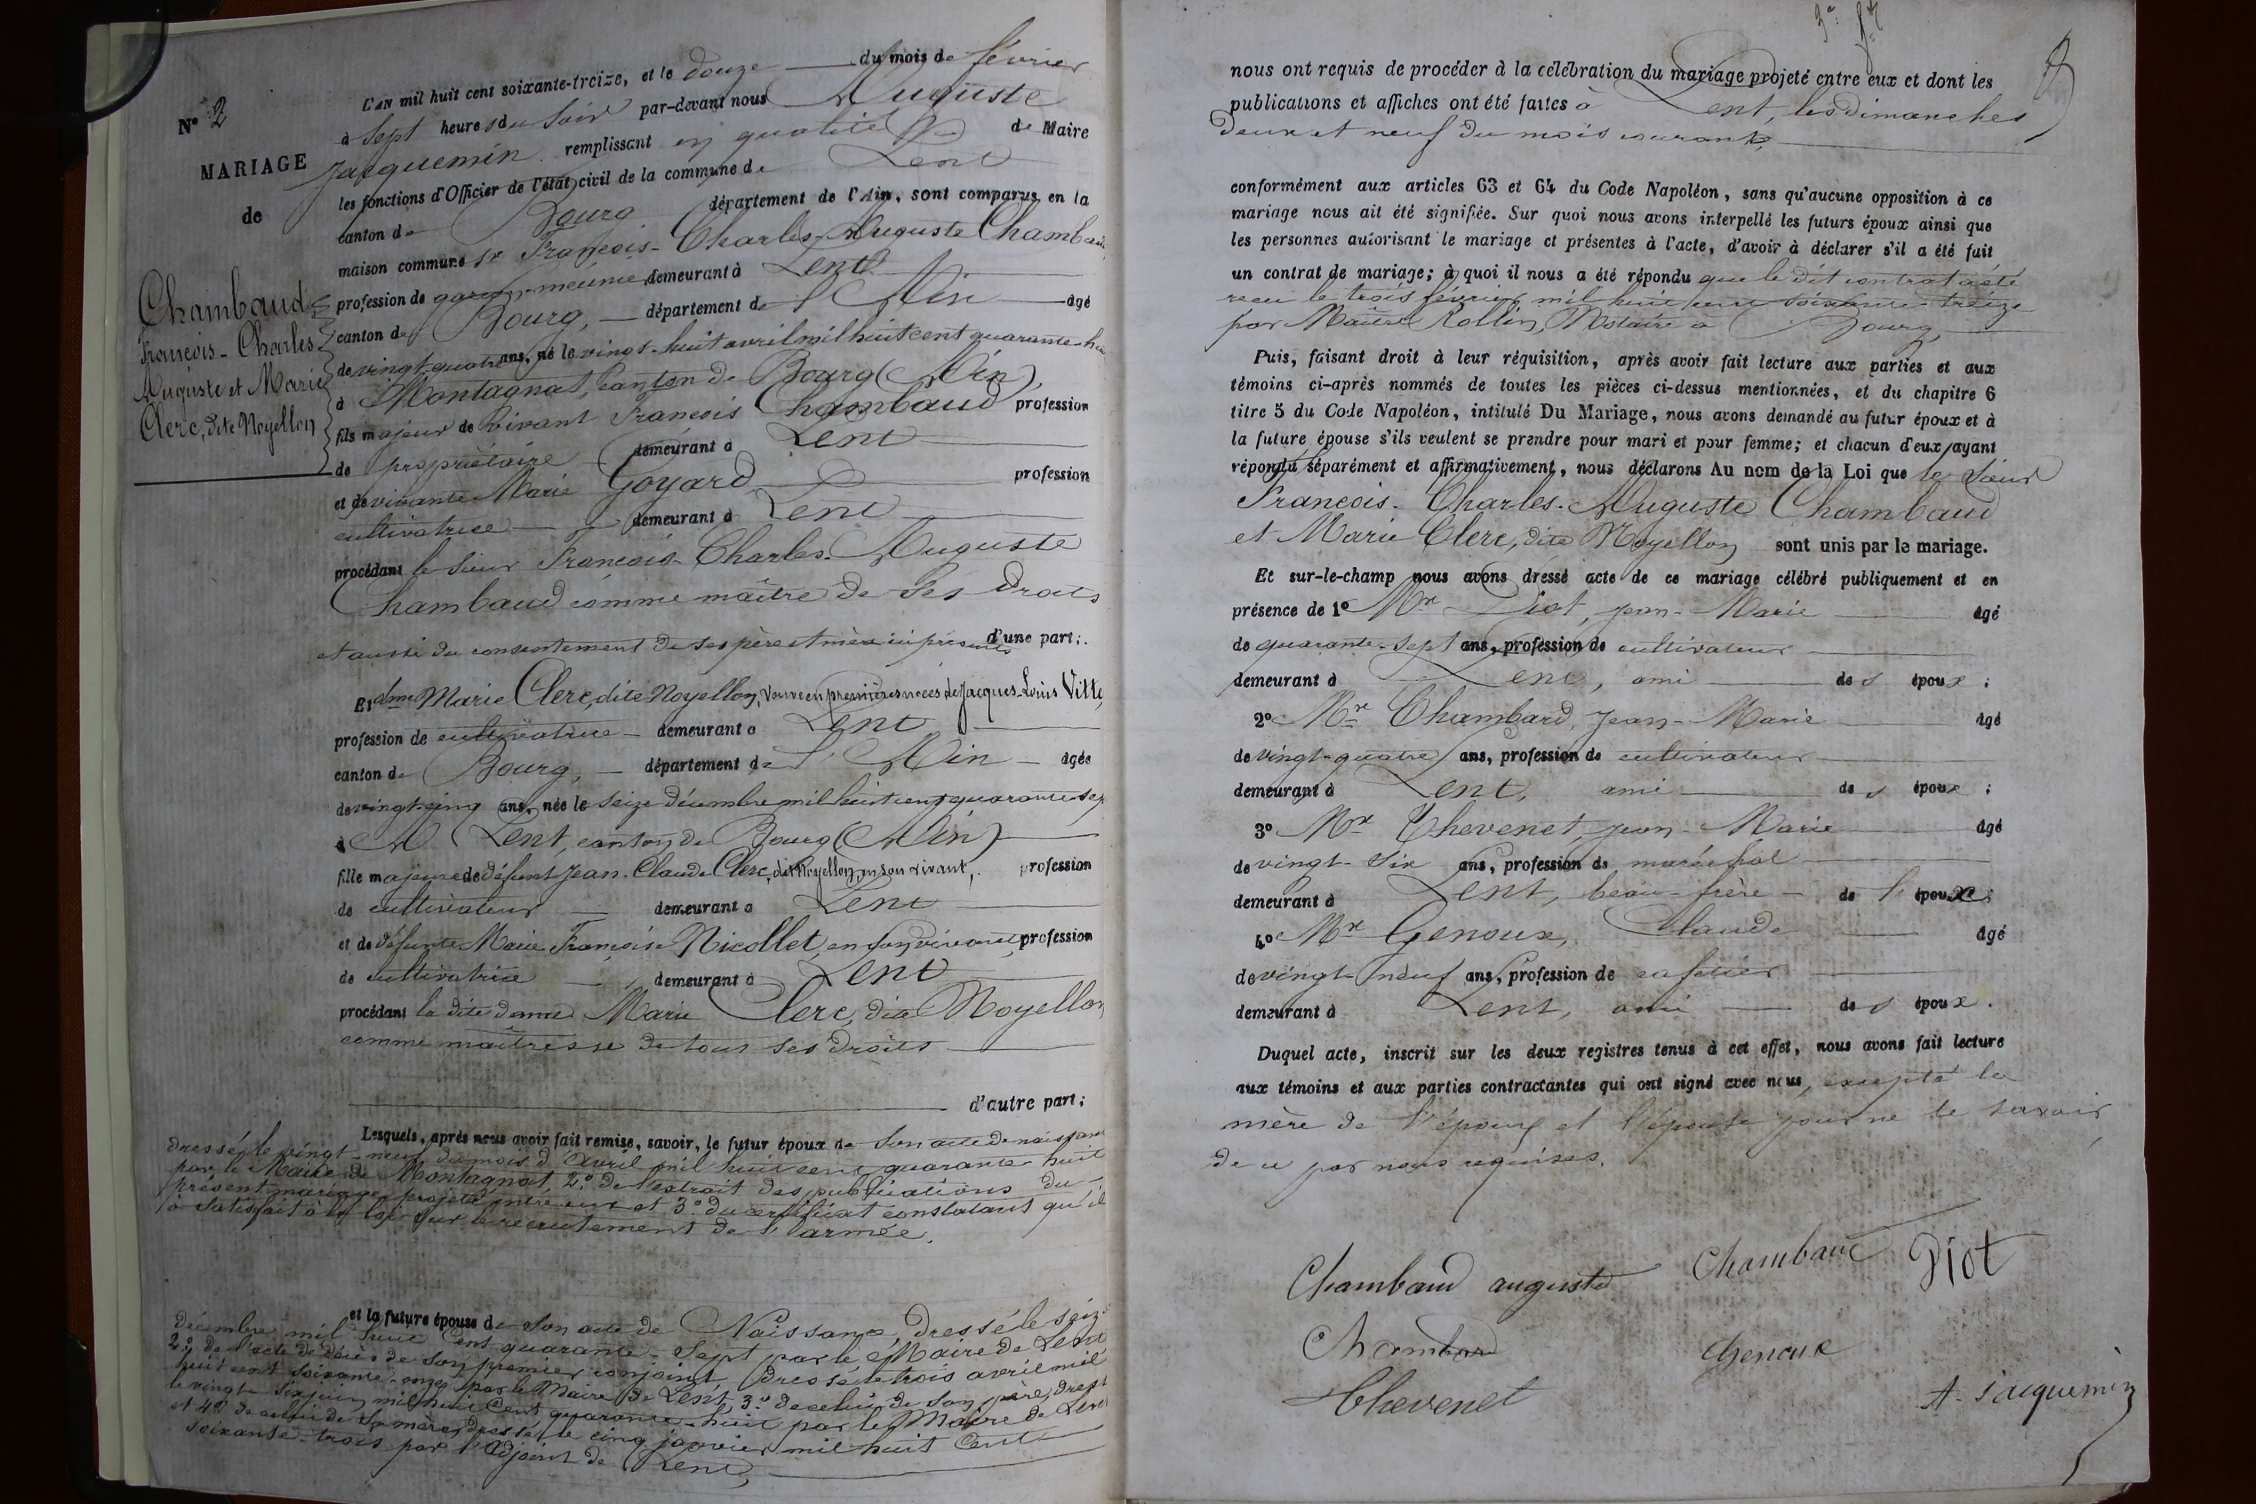 N° 2
MARIAGE
de
Chambaud
François-Charles
Auguste et Marie
Clerc, dite Noyellon
L'AN mil huit cent soixante-treize, et le douze du mois de février
à sept heures du soir par-devant nous Auguste
Jacquemin remplissant en qualité de Maire
les fonctions d'Officier de l'état civil de la commune de Lent
canton de Bourg département de l'Ain, sont comparus en la
maison commune sr François-Charles-Auguste Chambaud
profession de garçon-meunier demeurant à Lent
canton de Bourg, département de l'Ain âgé
de vingt-quatre ans, né le vingt-huit avril mil huit cent quarante-huit
à Montagnat, canton de Bourg (Ain),
fils majeur de vivant François Chambaud profession
de propriétaire demeurant à Lent
et de vivante Marie Goyard profession
cultivatrice demeurant à Lent
procédant le sieur François-Charles-Auguste
Chambaud comme maître de ses droits
et aussi du consentement de ses père et mère ici présents d'une part;
Et dme Marie Clerc, dite Noyellon, veuve en premières noces de Jacques-Louis Vitte,
profession de cultivatrice demeurant à Lent
canton de Bourg, département de l'Ain âgée
de vingt-cinq ans, née le seize décembre mil huit cent quarante-sept
à Lent, canton de Bourg (Ain)
fille majeure de défunt Jean-Claude Clerc, dit Noyellon, en son vivant, profession
de cultivateur demeurant à Lent
et de défunte Marie Françoise Nicollet, en son vivant, profession
de cultivatrice demeurant à Lent
procédant la dite dame Marie Clerc, dite Noyellon
comme maîtresse de tous ses droits
d'autre part;
Lesquels, après nous avoir fait remise, savoir, le futur époux de son acte de naissance
dressé le vingt-neuf du mois d'avril mil huit cent quarante huit
par le Maire de Montagnat, 2° de l'extrait des publications du
présent mariage projeté entre eux et 3° du certificat constatant qu'il
a satisfait à la loi sur le recrutement de l'armée.
et la future épouse de son acte de Naissance, dressé le seize
décembre mil huit cent quarante-sept par le Maire de Lent
2° de l'acte de décès de son premier conjoint, dressé le trois avril mil
huit cent soixante-onze par le Maire de Lent, 3° de celui de son père, dressé
le vingt-six juin mil huit cent quarante-huit par le Maire de Lent
et 4° de celui de sa mère, dressé le cinq janvier mil huit cent
soixante-trois par l'Adjoint de Lent,
nous ont requis de procéder à la célébration du mariage projeté entre eux et dont les
publications et affiches ont été faites à Lent, les dimanches
deux et neuf du mois courant,
conformément aux articles 63 et 64 du Code Napoléon, sans qu'aucune opposition à ce
mariage nous ait été signifiée. Sur quoi nous avons interpellé les futurs époux ainsi que
les personnes autorisant le mariage et présentes à l'acte, d'avoir à déclarer s'il a été fait
un contrat de mariage; à quoi il nous a été répondu que le dit contrat a été
reçu le trois février mil huit cent soixante treize
par Maître Rollin, Notaire à Bourg,
Puis, faisant droit à leur réquisition, après avoir fait lecture aux parties et aux
témoins ci-après nommés de toutes les pièces ci-dessus mentionnées, et du chapitre 6
titre 5 du Code Napoléon, intitulé Du Mariage, nous avons demandé au futur époux et à
la future épouse s'ils veulent se prendre pour mari et pour femme; et chacun d'eux ayant
répondu séparément et affirmativement, nous déclarons Au nom de la Loi que le Sieur
François-Charles-Auguste Chambaud
et Marie Clerc, dite Noyellon sont unis par le mariage.
Et sur-le-champ nous avons dressé acte de ce mariage célébré publiquement et en
présence de 1° Mr Diot, Jean-Marie âgé
de quarante-sept ans, profession de cultivateur
demeurant à Lent, ami des époux;
2° Mr Chambard, Jean-Marie âgé
de vingt-quatre ans, profession de cultivateur
demeurant à Lent, ami des époux;
3° Mr Thevenet, Jean-Marie âgé
de vingt-six ans, profession de maréchal
demeurant à Lent, beau-frère de l'époux;
4° Mr Genoux, Claude âgé
de vingt-neuf ans, profession de cafetier
demeurant à Lent, ami des époux.
Duquel acte, inscrit sur les deux registres tenus à cet effet, nous avons fait lecture
aux témoins et aux parties contractantes qui ont signé avec nous, excepté la
mère de l'époux et l'épouse pour ne le savoir
de ce par nous requises.
Chambaud auguste Chambaud Diot
Chambard Genoux
Thevenet A. Jacquemin